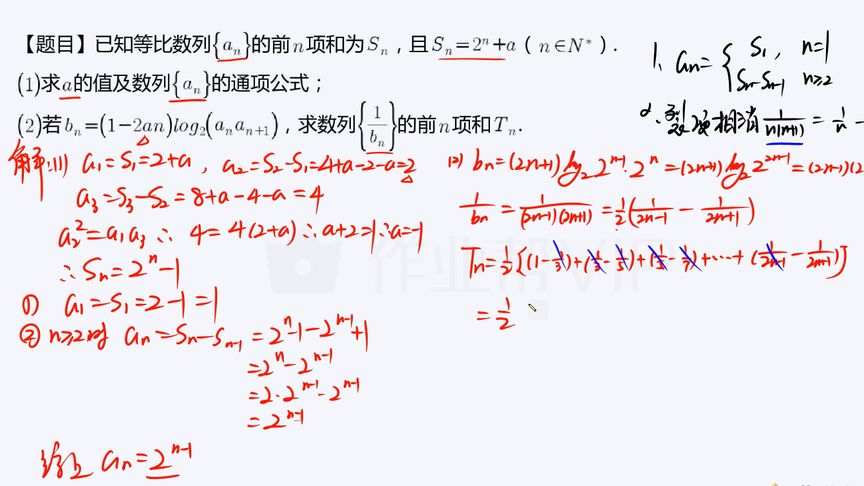 【题目】已知等比数列{aₙ}的前n项和为Sₙ，且Sₙ=2ⁿ+a（n∈N*）.
(1)求a的值及数列{aₙ}的通项公式；
(2)若bₙ=(1-2an)log₂(aₙaₙ₊₁)，求数列{1/bₙ}的前n项和Tₙ.
1. aₙ={S₁, n=1
Sₙ-Sₙ₋₁ n≥2
2. 裂项相消 1/n(n+1) = 1/n -
解:(1) a₁=S₁=2+a, a₂=S₂-S₁=4+a-2-a=2
a₃=S₃-S₂=8+a-4-a=4
a₂²=a₁a₃ ∴ 4=4(2+a) ∴a+2=1∴a=-1
∴Sₙ=2ⁿ-1
① a₁=S₁=2-1=1
② n≥2时 aₙ=Sₙ-Sₙ₋₁=2ⁿ-1-2ⁿ⁻¹+1
=2ⁿ-2ⁿ⁻¹
=2·2ⁿ⁻¹-2ⁿ⁻¹
=2ⁿ⁻¹
综上 aₙ=2ⁿ⁻¹
(2) bₙ=(2n+1)log₂2ⁿ⁻¹·2ⁿ=(2n+1)log₂2²ⁿ⁻¹=(2n-1)(2
1/bₙ=1/(2n-1)(2n+1)=1/2(1/2n-1 - 1/2n+1)
Tₙ=1/2[(1-1/3)+(1/3-1/5)+(1/5-1/7)+……+(1/2n-1 - 1/2n+1)]
=1/2
作业帮VIP